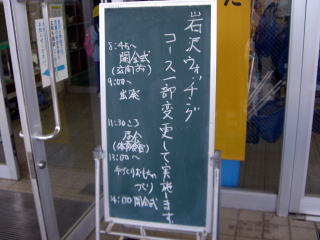 岩沢ウォッチング
コース一部変更して実施します。
8:45〜
開会式
(玄関前)
9:00〜
出発
11:30ころ
昼食
(体育館)
13:00〜
手づくりおもちゃ
づくり
14:00 閉会式